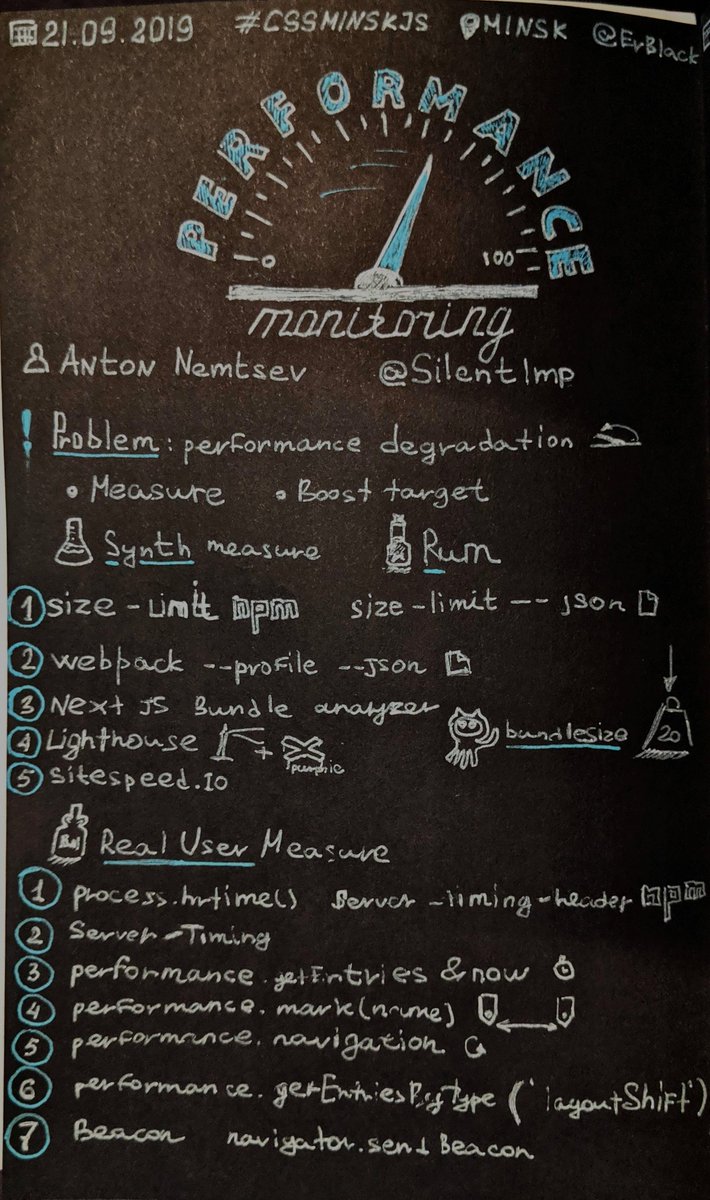 21.09.2019 #CSSMINSKJS MINSK @ErBlack
PERFORMANCE
0 100
monitoring
Anton Nemtsev @SilentImp
! Problem: performance degradation
• Measure • Boost target
Synth measure Rum
1 size-limit npm size-limit -- json
2 webpack --profile --json
3 Next JS Bundle analyzer
4 Lighthouse + bundlesize 20
5 sitespeed.io
Real User Measure
1 process.hrtime() Server-timing-header npm
2 Server-Timing
3 performance.getEntries & now
4 performance.mark(name)
5 performance.navigation
6 performance.getEntriesByType('layoutShift')
7 Beacon navigator.sendBeacon